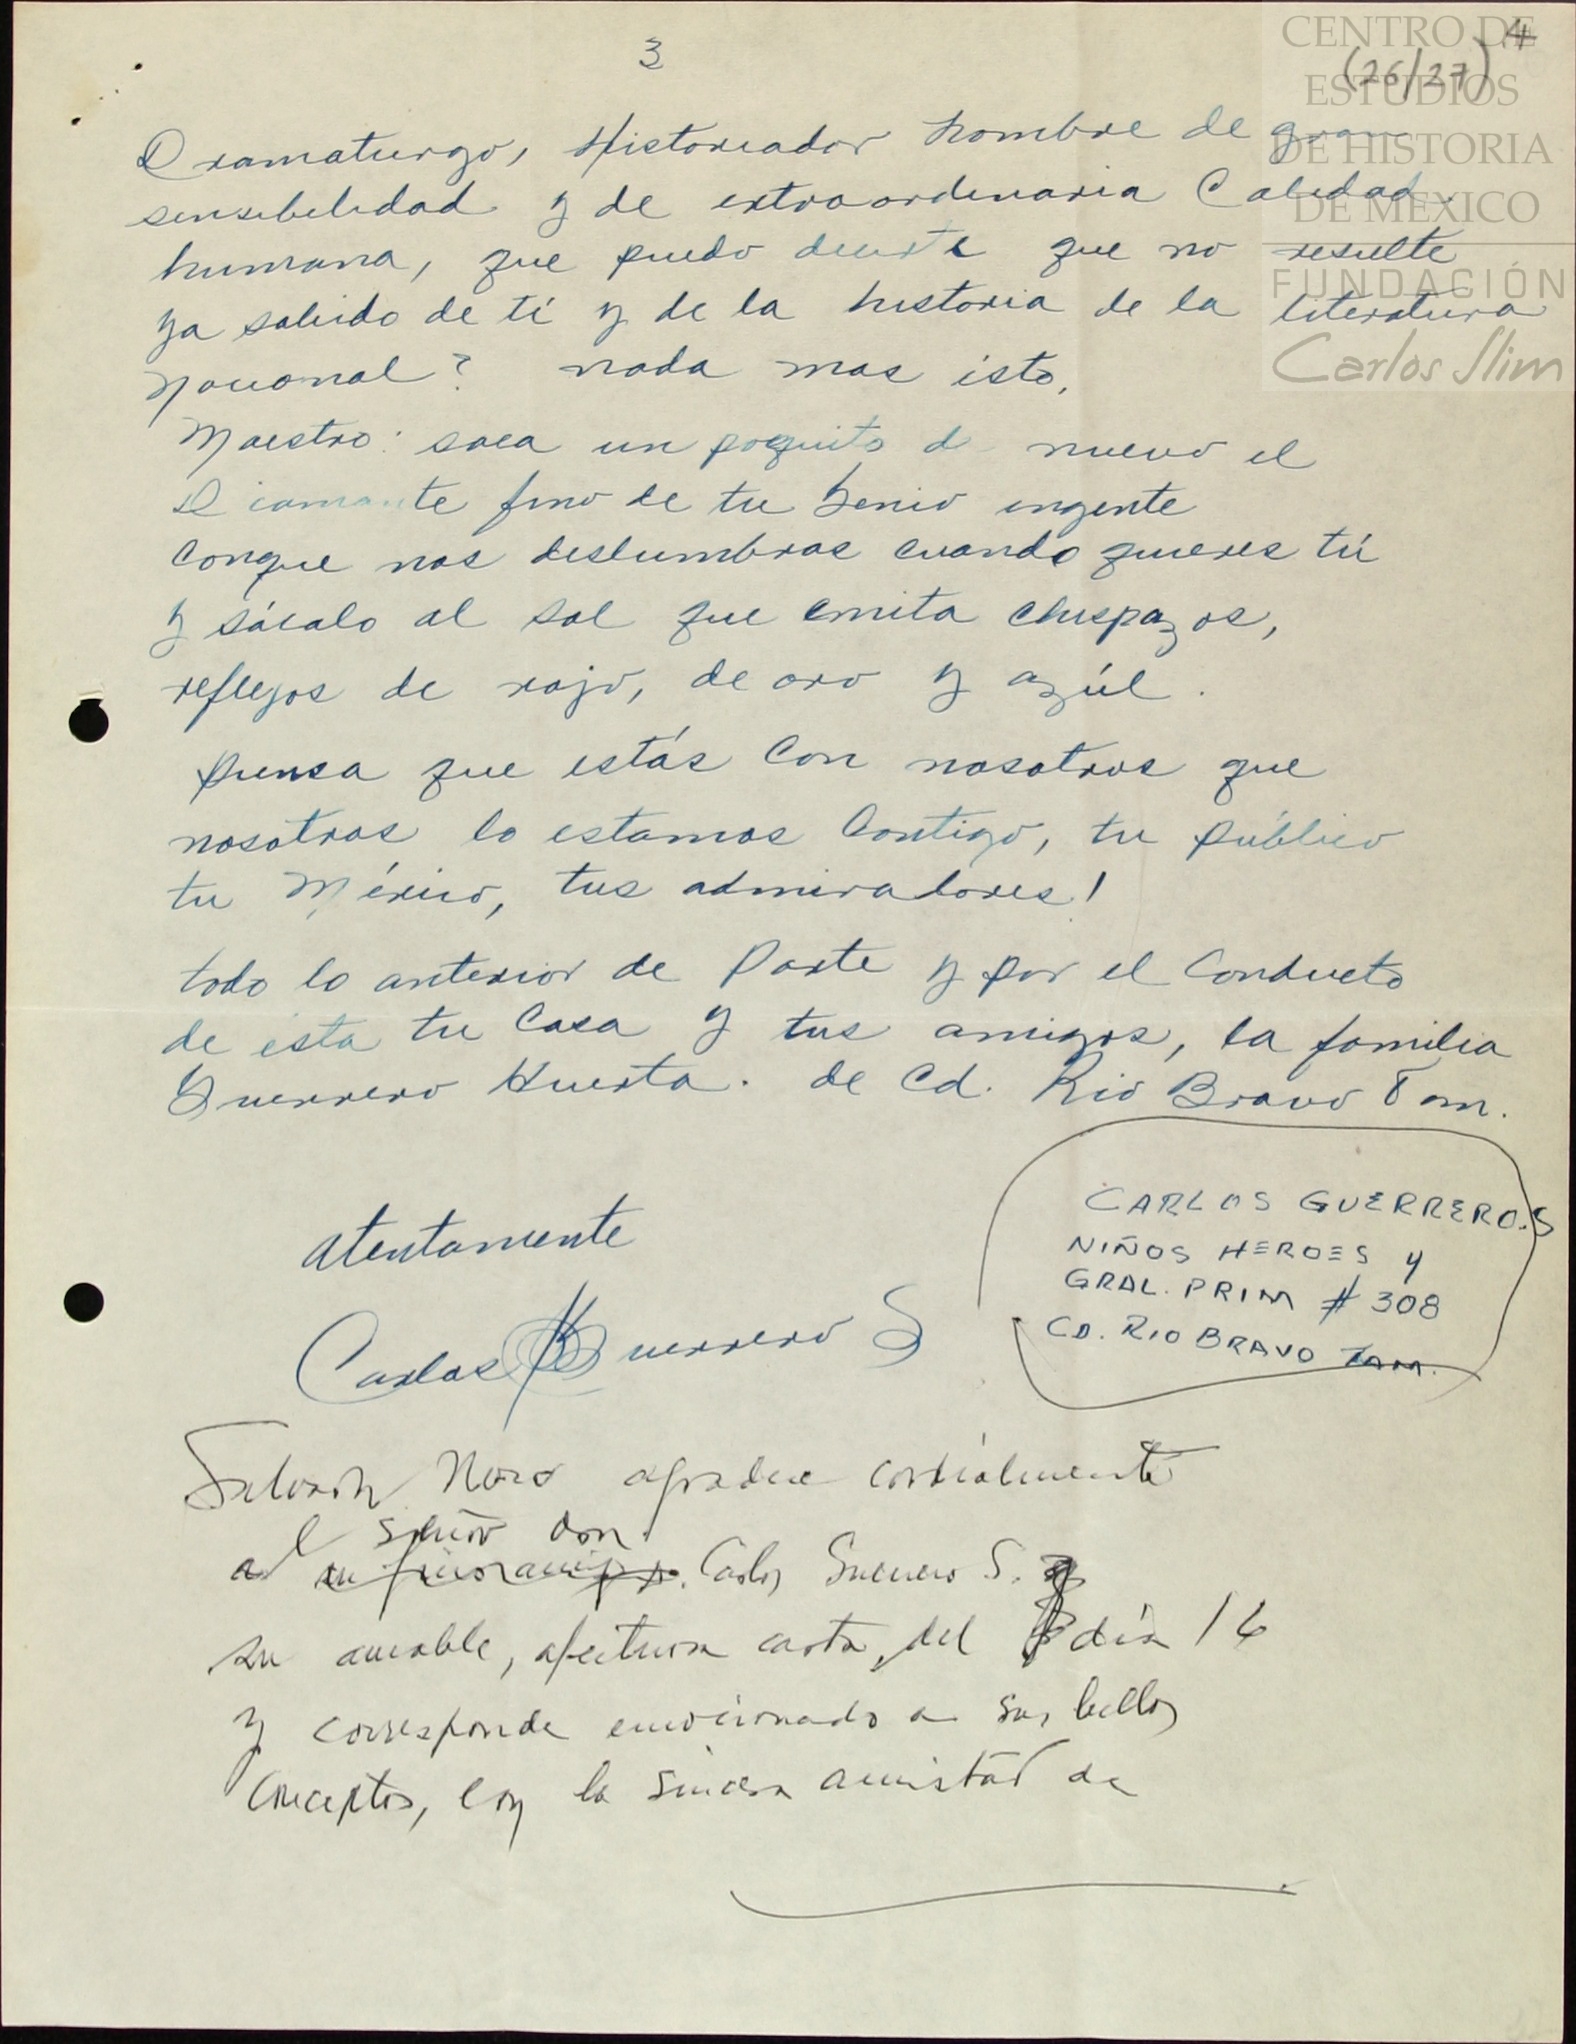 3
4
(26/27)
CENTRO DE
ESTUDIOS
DE HISTORIA
DE MEXICO
FUNDACIÓN
Carlos Slim
Dramaturgo, Historiador hombre de gran
sensibilidad y de extraordinaria Calidad
humana, que puedo decirte que no resulte
ya sabido de tí y de la historia de la literatura
nacional? nada mas ésto,
Maestro: saca un poquito de nuevo el
Diamante fino de tu Genio ingente
conque nos deslumbras cuando quieres tú
y sácalo al sol que emita chispazos,
reflejos de rojo, de oro y azúl.
piensa que estás con nosotros que
nosotros lo estamos contigo, tu público
tu México, tus admiradores!
todo lo anterior de parte y por el conducto
de ésta tu Casa y tus amigos, la familia
Guerrero Huerta. de Cd. Rio Bravo Tam.
CARLOS GUERRERO.S
NIÑOS HEROES Y
GRAL. PRIM # 308
CD. RIO BRAVO TAM.
atentamente
Carlos Guerrero S
Salvador Novo agradece cordialmente
al señor don
Carlos Guerrero S.
su amable, afectuosa carta, del día 16
y corresponde emocionado a sus bellos
conceptos, con la sincera amistad de